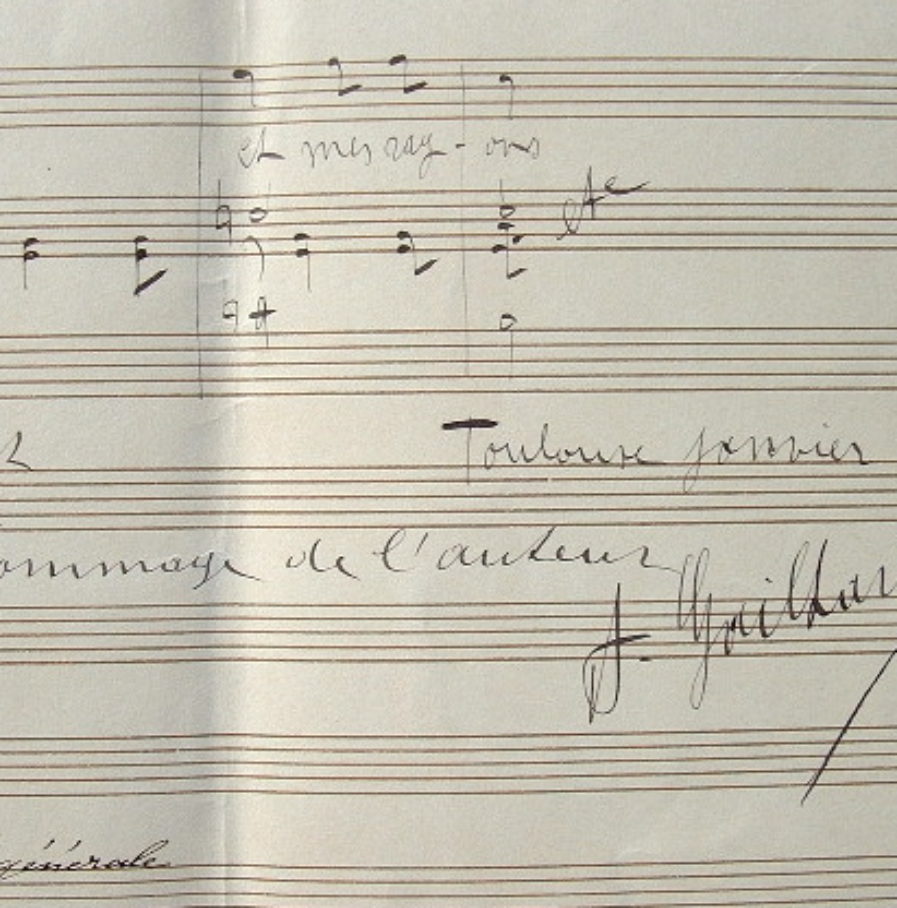 et mes ray - ons
Toulouse janvier
ommage de l'auteur
A.
générale